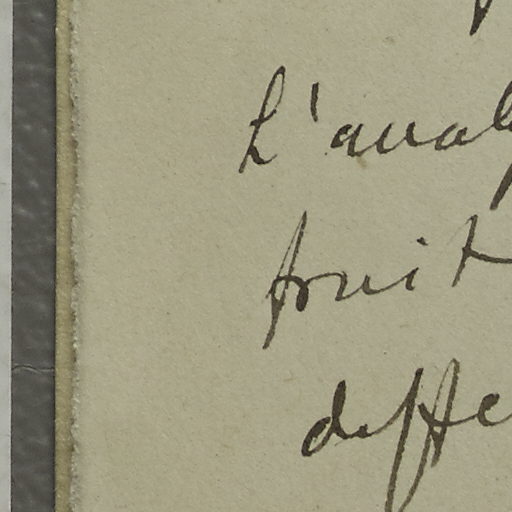 L'anal
fruit
diffe